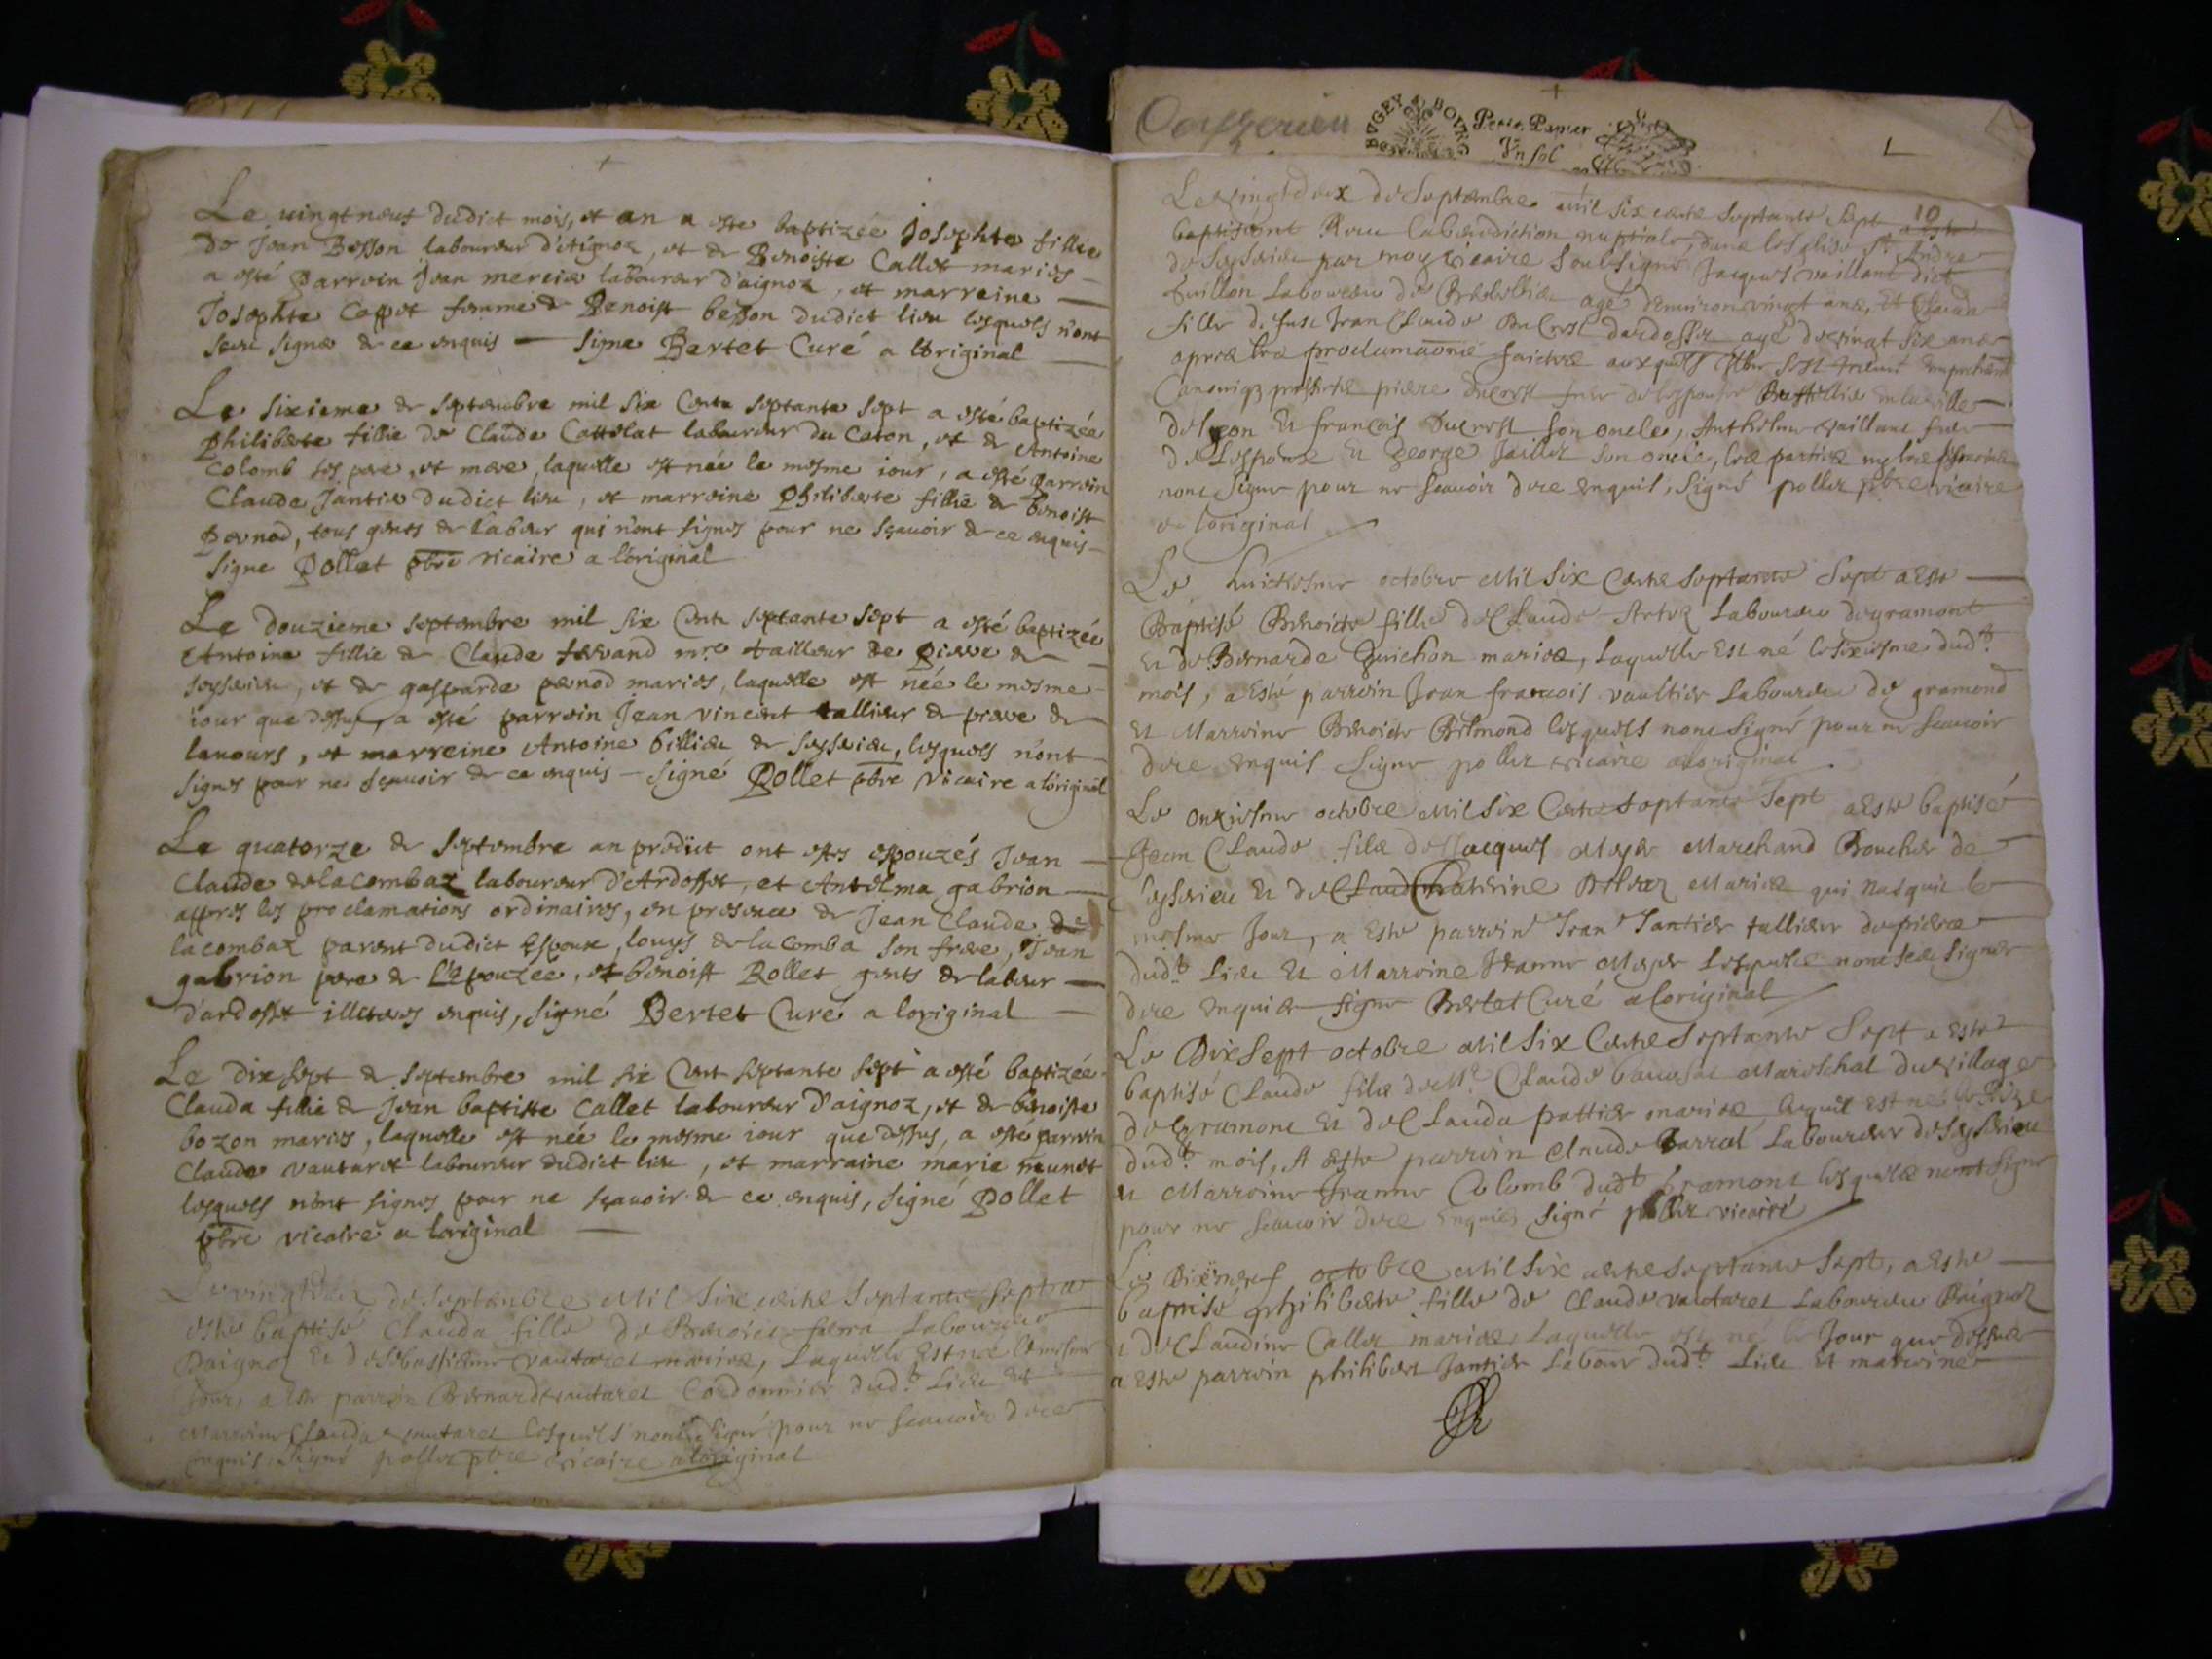 Le uingt neuf dudict mois, et an a este baptizée Josephte fillie
de Jean Besson laboureur d'Aignoz, et de Benoiste Callet mariés
a esté parroin Jean mercier laboureur d'aignoz, et marreine
Josephte Cappet femme de Benoist besson dudict lieu lesquels n'ont
sceu signer de ce enquis signe Bertet Curé a l'original
Le sixieme de septembre mil six Cents septante sept a esté baptizée
Philiberte fillie de Claude Cattelat laboureur du Caton, et de Antoine
Colomb ses pere, et mere, laquelle est née le mesme iour, a esté parroin
Claude Jantier dudict lieu, et marroine Philiberte fillie de benoist
Pernod, tous gents de labeur qui n'ont signes pour ne sçauoir de ce enquis
signe Pollet pbre vicaire a l'original
Le douzieme septembre mil six Cents septante sept a esté baptizée
Antoine fillie de Claude ferrand mre tailleur de pierre de
seyssieu, et de gasparde pernod mariés, laquelle est née le mesme
iour que dessus, a esté parroin Jean vincent tallieur de pierre de
lauours, et marreine Antoine billieu de seyssieu, lesquels n'ont
signes pour ne sçauoir de ce enquis signé Pollet pbre vicaire a l'original
Le quatorze de septembre an prédict ont estes espouzés Jean
Claude de la combaz laboureur d'Ardosset, et Antelma gabrion
appres les proclamations ordinaires, en presence de Jean Claude de
la combaz parent dudict Espoux, louys de la Comba son frere, Jean
gabrion pere de L'epouzée, et benoist Rollet gents de labeur
d'ardosset illeteres enquis, signé Bertet Curé a loriginal
Le dix sept de septembre mil six Cent septante sept a esté baptizée
Clauda fillie de Jean baptiste Callet laboureur d'aignoz, et de benoiste
bozon mariés, laquelle est née le mesme iour que dessus, a esté parroin
Claude vautaret laboureur dudict lieu, et marraine marie
lesquels n'ont signes pour ne sçauoir de ce enquis, signé Pollet
pbre vicaire a loriginal
Le vingt deux de Septembre Mil Six cents Septante Sept a
este baptisé Clauda fille de Benoict Laboureur
Daignoz Et de Sebastienne vautaret mariez, Laquelle Est née le mesme
Jour, a este parroin Bernard vautaret Cordonnier dudt Lieu et
Marroine Clauda vautaret Lesquels nont Signé pour ne Scauoir de ce
enquis, Signé pollet pbre vicaire a loriginal
BVGEY
Petit Papier
Vn sol
10
Le vingt deux de Septembre Mil Six cents Septante Sept
Receu la benediction nuptiale, dans leglise St Andre
de Seyssieu par moy vicaire Soubsigné Jacques vaillant dict
fuillon Laboureur de agé denuiron vingt ans, Et Clauda
fille de feu Jean Claude Ducrest dardosset agé de vingt six ans
apres les proclamaons faictes
Canoniq presents pierre Ducrest
de Lyon Et françois Ducrest Son oncle, Anthelme vaillant frere
de Lespoux Et George Jaillet Son oncle, les parties
nont Signe pour ne Scauoir de ce enquis, Signé pollet pbre vicaire
a loriginal
Le huictiesme octobre Mil Six Cents Septante Sept a Este
Baptisé Benoicte fille de Claude Laboureur de gramont
Et de Bernarde Guichon mariez, Laquelle Est né le sixiesme dudt
mois, a Esté parroin Jean francois vaultier Laboureur de gramond
Et Marroine Benoicte Belmond lesquels nont Signé pour ne Scauoir
de ce enquis Signe pollet vicaire a loriginal
Le onziesme octobre Mil Six Cents Septante Sept a Este baptisé
Jean Claude fils de Jacques Marchand Boucher de
Seyssieu Et de Catherine mariez qui Nasquit le
mesme Jour, a Este parroin Jean Jantier tallieur de pierre
dudt Lieu Et Marroine Jeanne Lesquels nont Sceu Signer
de ce enquis signe Bertet Curé a loriginal
Le Dix Sept octobre Mil Six Cents Septante Sept a Este
baptisé Claude fils de Mre Claude Mareschal du village
de Gramont Et de Clauda pattier mariez Lequel Est né le Seize
dudt mois, A este parroin Claude Barral Laboureur de Seyssieu
Et Marroine Jeanne Colomb dudt Gramont lesquels nont Signe
pour ne Scauoir de ce enquis signé pollet vicaire
Le Dixneuf octobre Mil Six cents Septante Sept, a Este
baptisé philiberte fille de Claude vautaret Laboureur Daignoz
Et de Claudine Callet mariez, Laquelle est né le Jour que dessus
a Este parroin philibert Jantier Labour dudt Lieu Et marroine